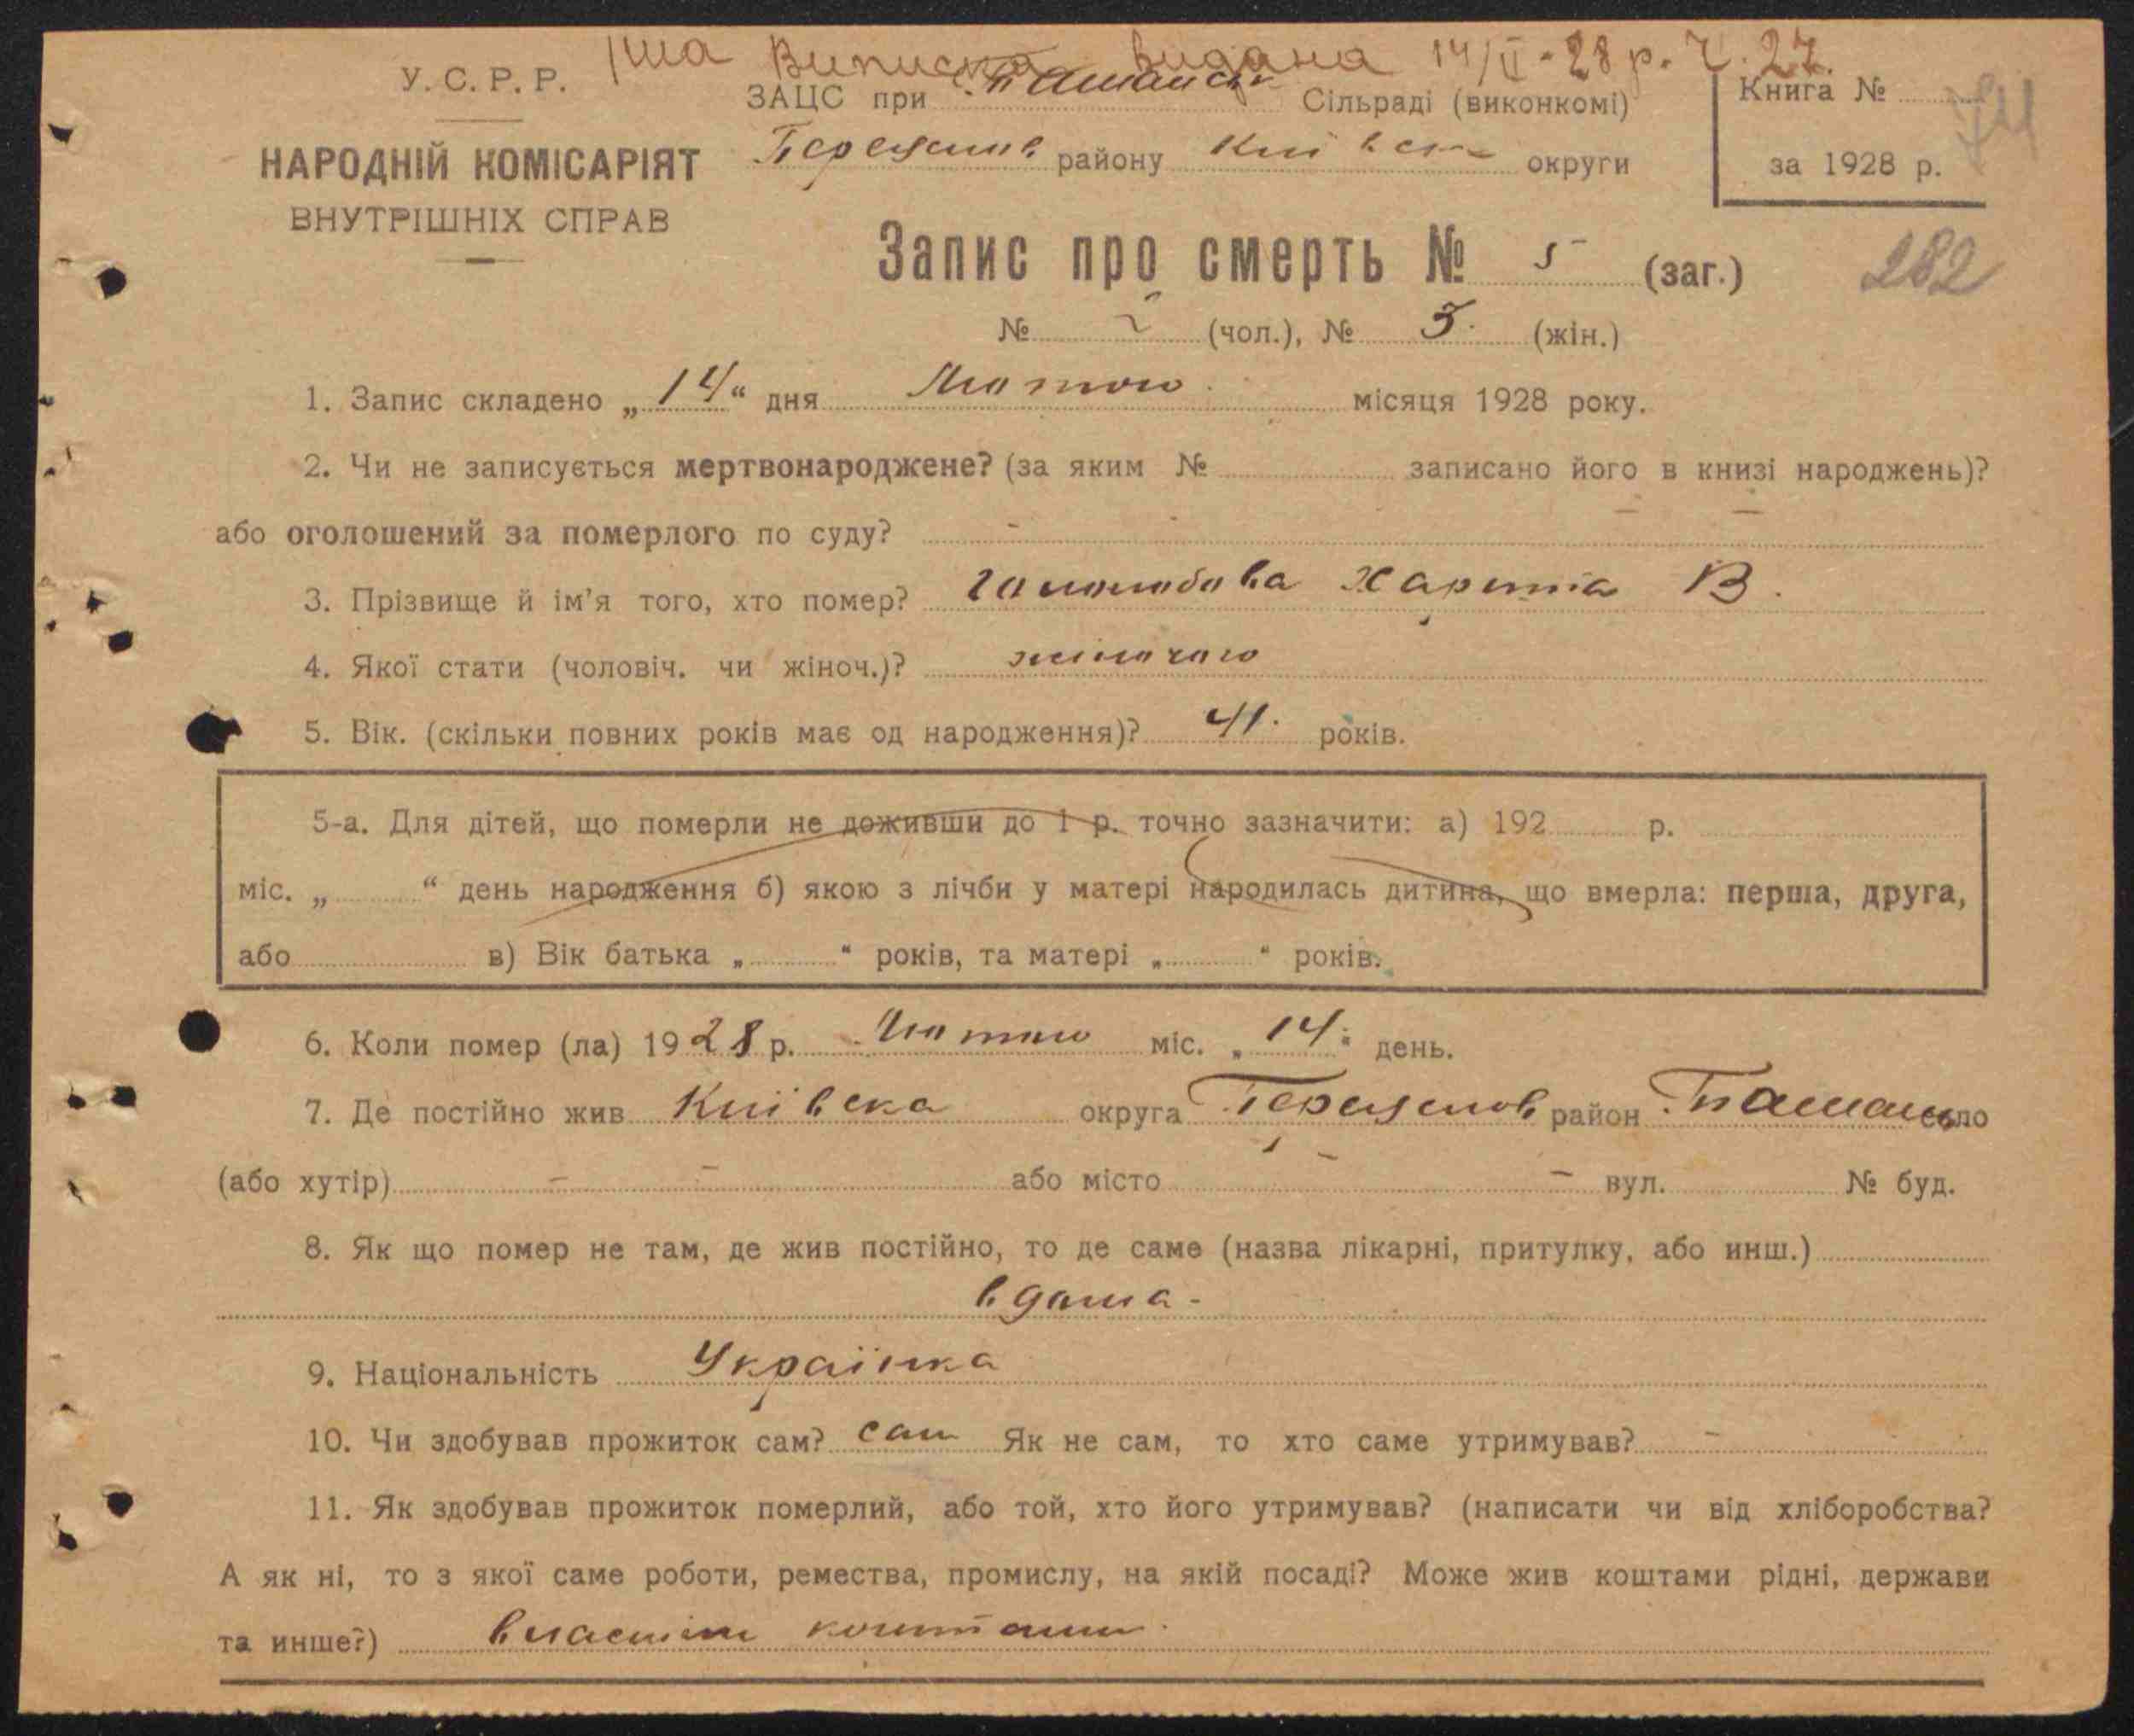 1ша Виписка видана 14/II-28 р. Ч. 27.
У. С. Р. Р.
ЗАЦС при Ташанськ Сільраді (виконкомі)
Книга № 74
НАРОДНІЙ КОМІСАРІЯТ
району Київськ округи
за 1928 р.
ВНУТРІШНІХ СПРАВ
Запис про смерть № 5 (заг.)
282
№ (чол.), № 3. (жін.)
1. Запис складено „14“ дня Лютого місяця 1928 року.
2. Чи не записується мертвонароджене? (за яким № записано його в книзі народжень)?
або оголошений за померлого по суду? -
3. Прізвище й ім'я того, хто помер? В.
4. Якої стати (чоловіч. чи жіноч.)? жіночого
5. Вік. (скільки повних років має од народження)? 41. років.
5-а. Для дітей, що померли не доживши до 1 р. точно зазначити: а) 192 р.
міс. „ “ день народження б) якою з лічби у матері народилась дитина, що вмерла: перша, друга,
або в) Вік батька „ “ років, та матері „ “ років.
6. Коли помер (ла) 1928 р. Лютого міс. „14“ день.
7. Де постійно жив Київська округа район Ташань село
(або хутір) - - або місто - - вул. № буд.
8. Як що помер не там, де жив постійно, то де саме (назва лікарні, притулку, або инш.)
вдома -
9. Національність Українка
10. Чи здобував прожиток сам? сам Як не сам, то хто саме утримував? -
11. Як здобував прожиток померлий, або той, хто його утримував? (написати чи від хліборобства?
А як ні, то з якої саме роботи, ремества, промислу, на якій посаді? Може жив коштами рідні, держави
та инше?) коштами